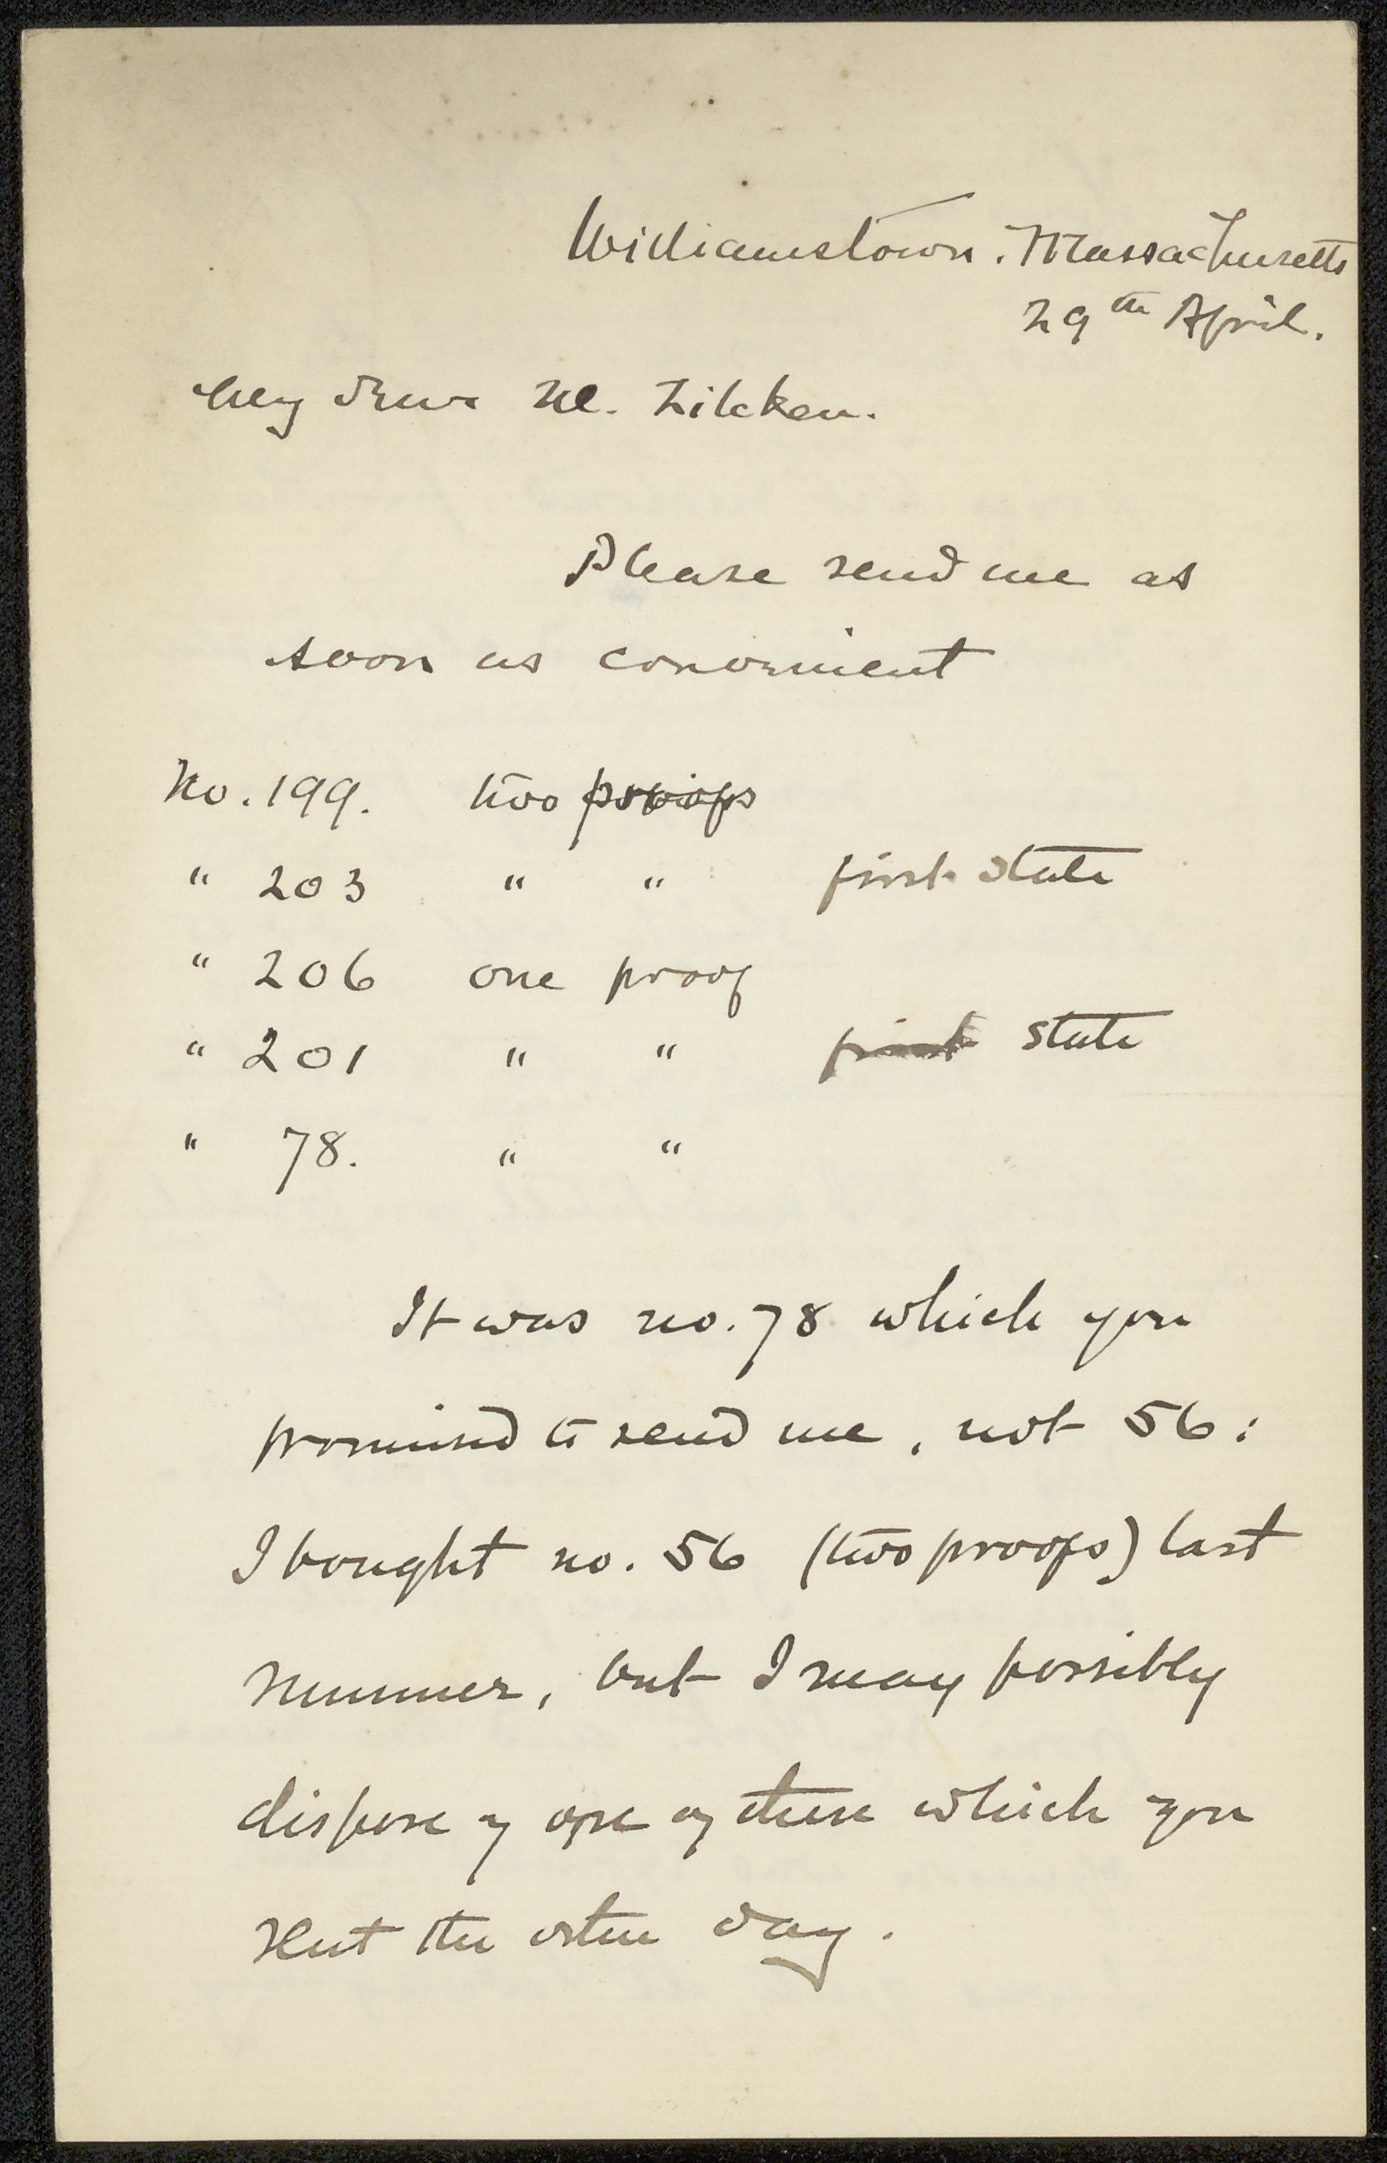 Williamstown. Massachusetts
29th April.
My dear M. Zilcken.
Please send me as
soon as convenient
No. 199. two proofs
" 203 " " first state
" 206 one proof
" 201 " " first state
" 78. " "
It was no. 78 which you
promised to send me, not 56:
I bought no. 56 (two proofs) last
summer, but I may possibly
dispose of one of these which you
sent the other day.